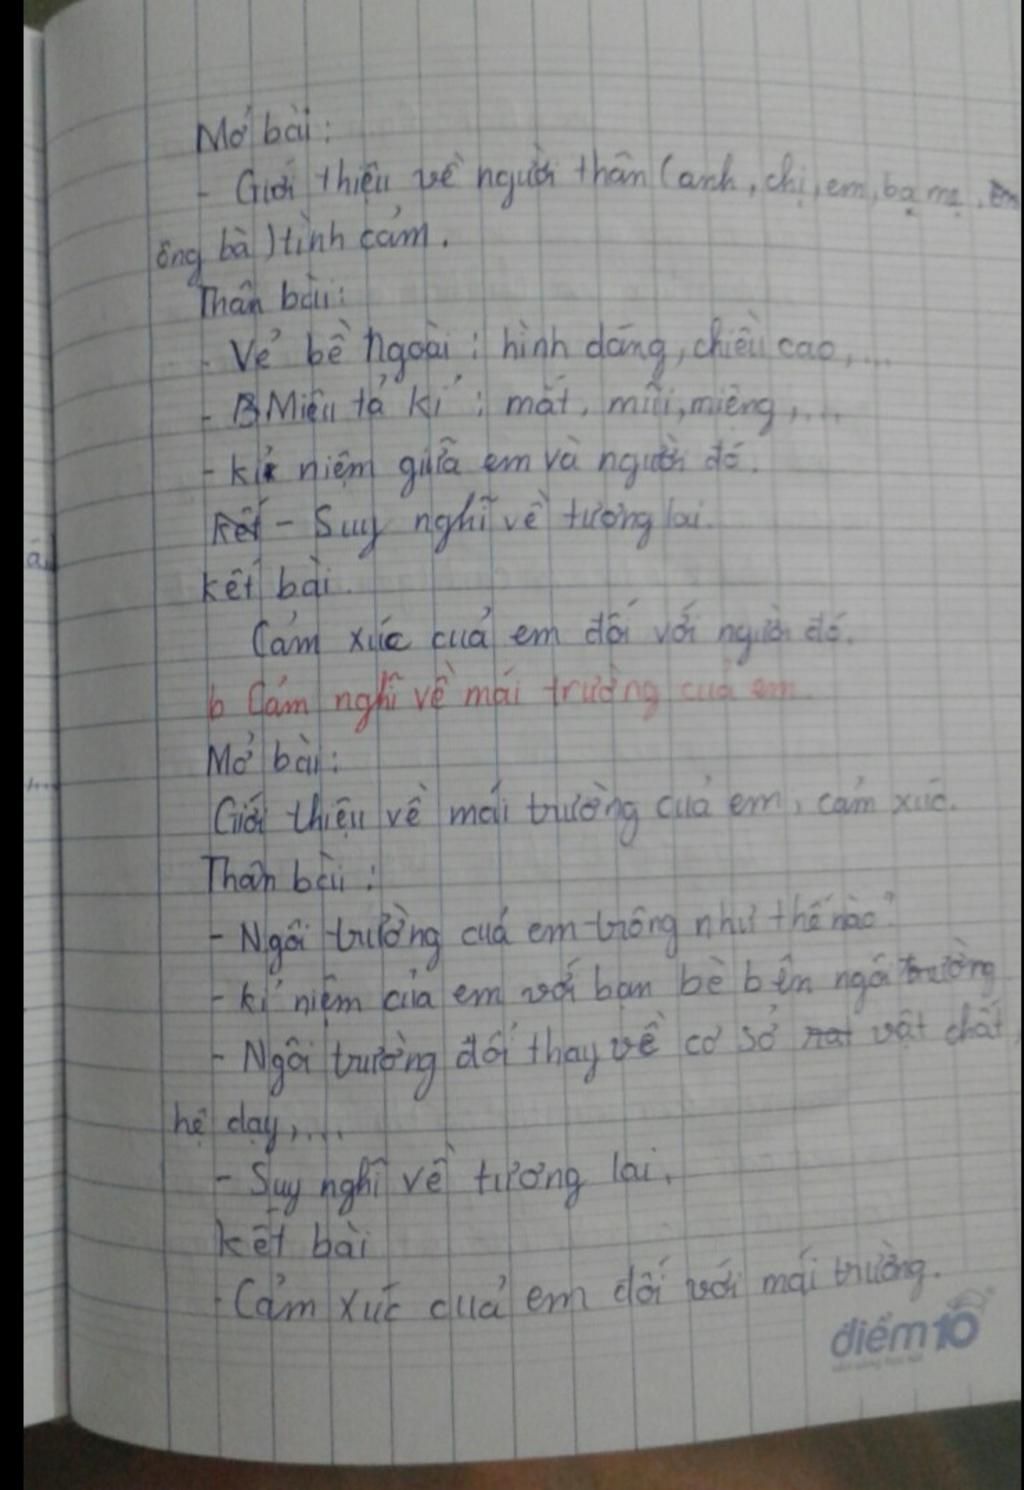 Mở bài:
- Giới thiệu về người thân (anh, chị, em, bạ mẹ,
ông bà) tình cảm.
Thân bài:
- Vẻ bề ngoài: hình dáng, chiều cao,...
- Miêu tả kĩ: mắt, mũi, miệng,...
- kỉ niệm giữa em và người đó.
- Suy nghĩ về tương lai.
kết bài.
Cảm xúc của em đối với người đó.
b Cảm nghĩ về mái trường của em
Mở bài:
Giới thiệu về mái trường của em, cảm xúc.
Thân bài:
- Ngôi trường của em trông như thế nào?
- kỉ niệm của em với bạn bè bên ngôi trường
- Ngôi trường đổi thay về cơ sở vật chất,
hệ dạy,...
- Suy nghĩ về tương lai.
kết bài
- Cảm xúc của em đối với mái trường.
điểm10